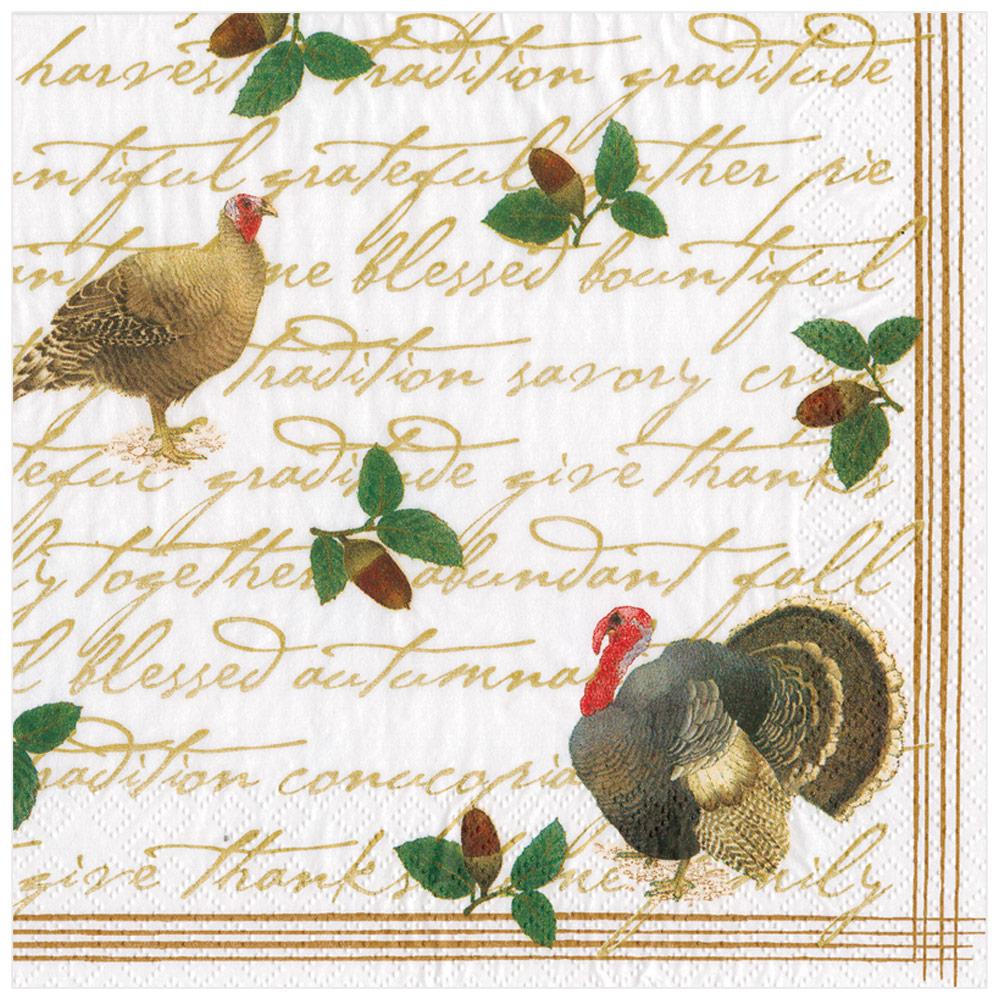 harvest tradition graditude
ntiful grateful ather pie
me blessed bountiful
tradition savory
teful gradidude give thanks
ly together abundant fall
l blessed autumna
radition conucopia
give thanks me mily